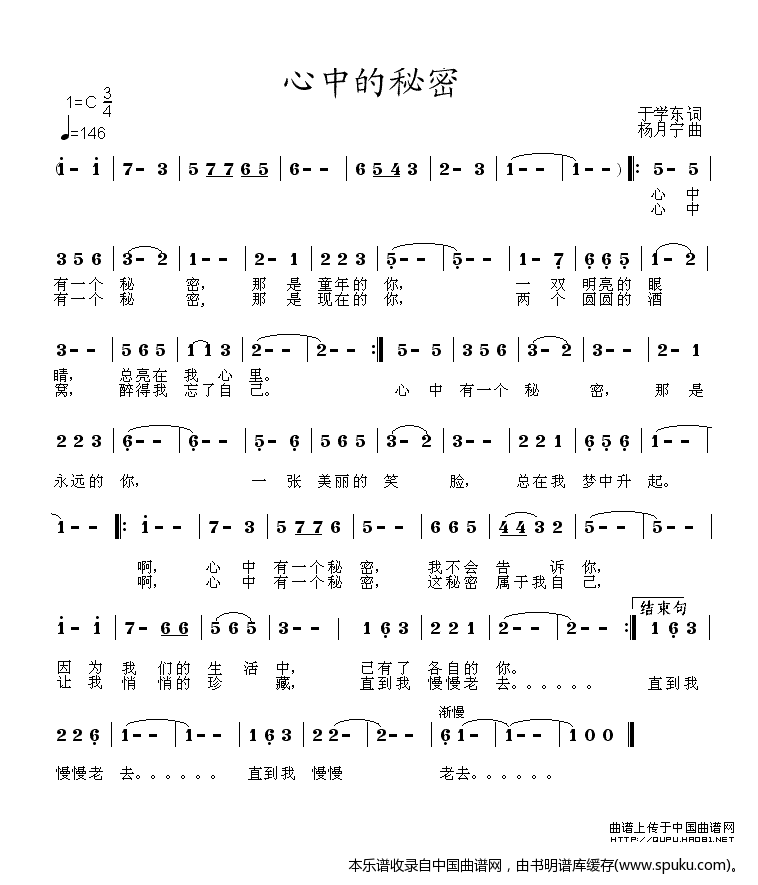 心中的秘密
1=C 3/4
♩=146
于学东 词
杨月宁 曲
(i- i | 7- 3 | 5 7 7 6 5 | 6- - | 6 5 4 3 | 2- 3 | 1- - | 1- - ) |: 5- 5 |
心 中
心 中
3 5 6 | 3- 2 | 1- - | 2- 1 | 2 2 3 | 5̣- - | 5̣- - | 1- 7̣ | 6̣ 6̣ 5̣ | 1- 2 |
有一个 秘 密, 那 是 童年的 你, 一 双 明亮的 眼
有一个 秘 密, 那 是 现在的 你, 两 个 圆圆的 酒
3- - | 5 6 5 | 1 1 3 | 2- - | 2- - :| 5- 5 | 3 5 6 | 3- 2 | 3- - | 2- 1
睛, 总亮在 我 心 里。
窝, 醉得我 忘了自 己。 心 中 有一个 秘 密, 那 是
2 2 3 | 6̣- - | 6̣- - | 5̣- 6̣ | 5 6 5 | 3- 2 | 3- - | 2 2 1 | 6̣ 5̣ 6̣ | 1- -
永远的 你, 一 张 美丽的 笑 脸, 总在我 梦中升 起。
1- - |: i- - | 7- 3 | 5 7 7 6 | 5- - | 6 6 5 | 4 4 3 2 | 5- - | 5- - |
啊, 心 中 有一个秘 密, 我不会 告 诉 你,
啊, 心 中 有一个秘 密, 这秘密 属于我自 己,
结束句
i- i | 7- 6 6 | 5 6 5 | 3- - | 1 6̣ 3 | 2 2 1 | 2- - | 2- - :| 1 6̣ 3 |
因 为 我 们的 生 活 中, 已有了 各自的 你。
让 我 悄 悄的 珍 藏, 直到我 慢慢老 去。。。。。。 直到我
渐慢
2 2 6̣ | 1- - | 1- - | 1 6̣ 3 | 2 2- | 2- - | 6̣ 1- | 1- - | 1 0 0 ‖
慢慢老 去。。。。。。 直到我 慢慢 老去。。。。。。
曲谱上传于中国曲谱网
HTTP://QUPU.HAO81.NET
本乐谱收录自中国曲谱网，由书明谱库缓存(www.spuku.com)。